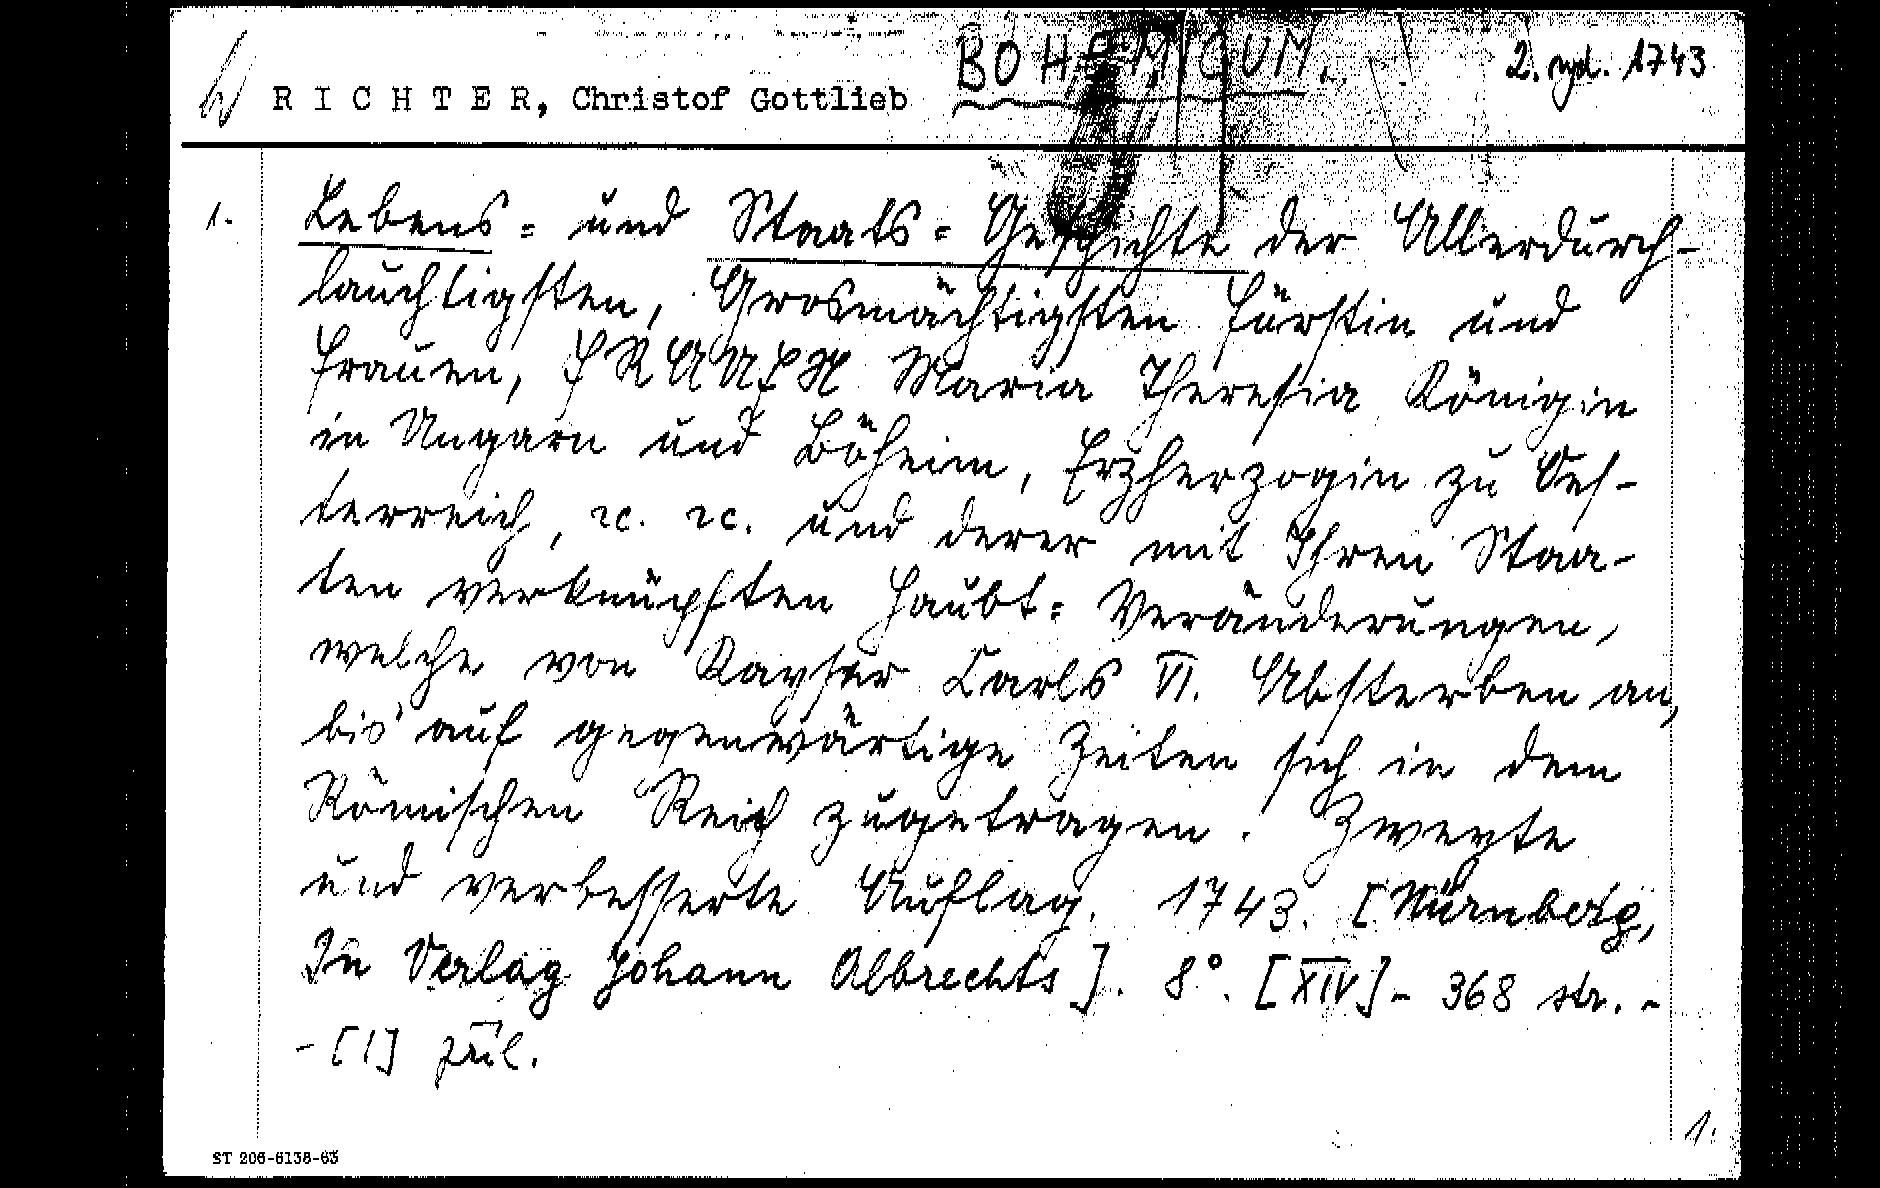 BOHEMICUM.
2. vyd. 1743
R I C H T E R, Christof Gottlieb
1.
Lebens= und Staats=Geschichte der Allerdurch-
lauchtigsten, Grosmächtigsten Fürstin und
Frauen, FRAUEN Maria Theresia Königin
in Ungarn und Böheim, Erzherzogin zu Oes-
terreich, rc. rc. und derer mit Ihren Staa-
ten verknüpften Haubt=Veränderungen,
welche von Kayser Carls VI. Absterben an,
bis auf gegenwärtige Zeiten sich in dem
Römischen Reich zugetragen. Zweyte
und verbesserte Auflag. 1743. [Nürnberg,
In Verlag Johann Albrechts]. 8°. [XIV]- 368 str. -
- [1] příl.
1.
ST 206-6138-63